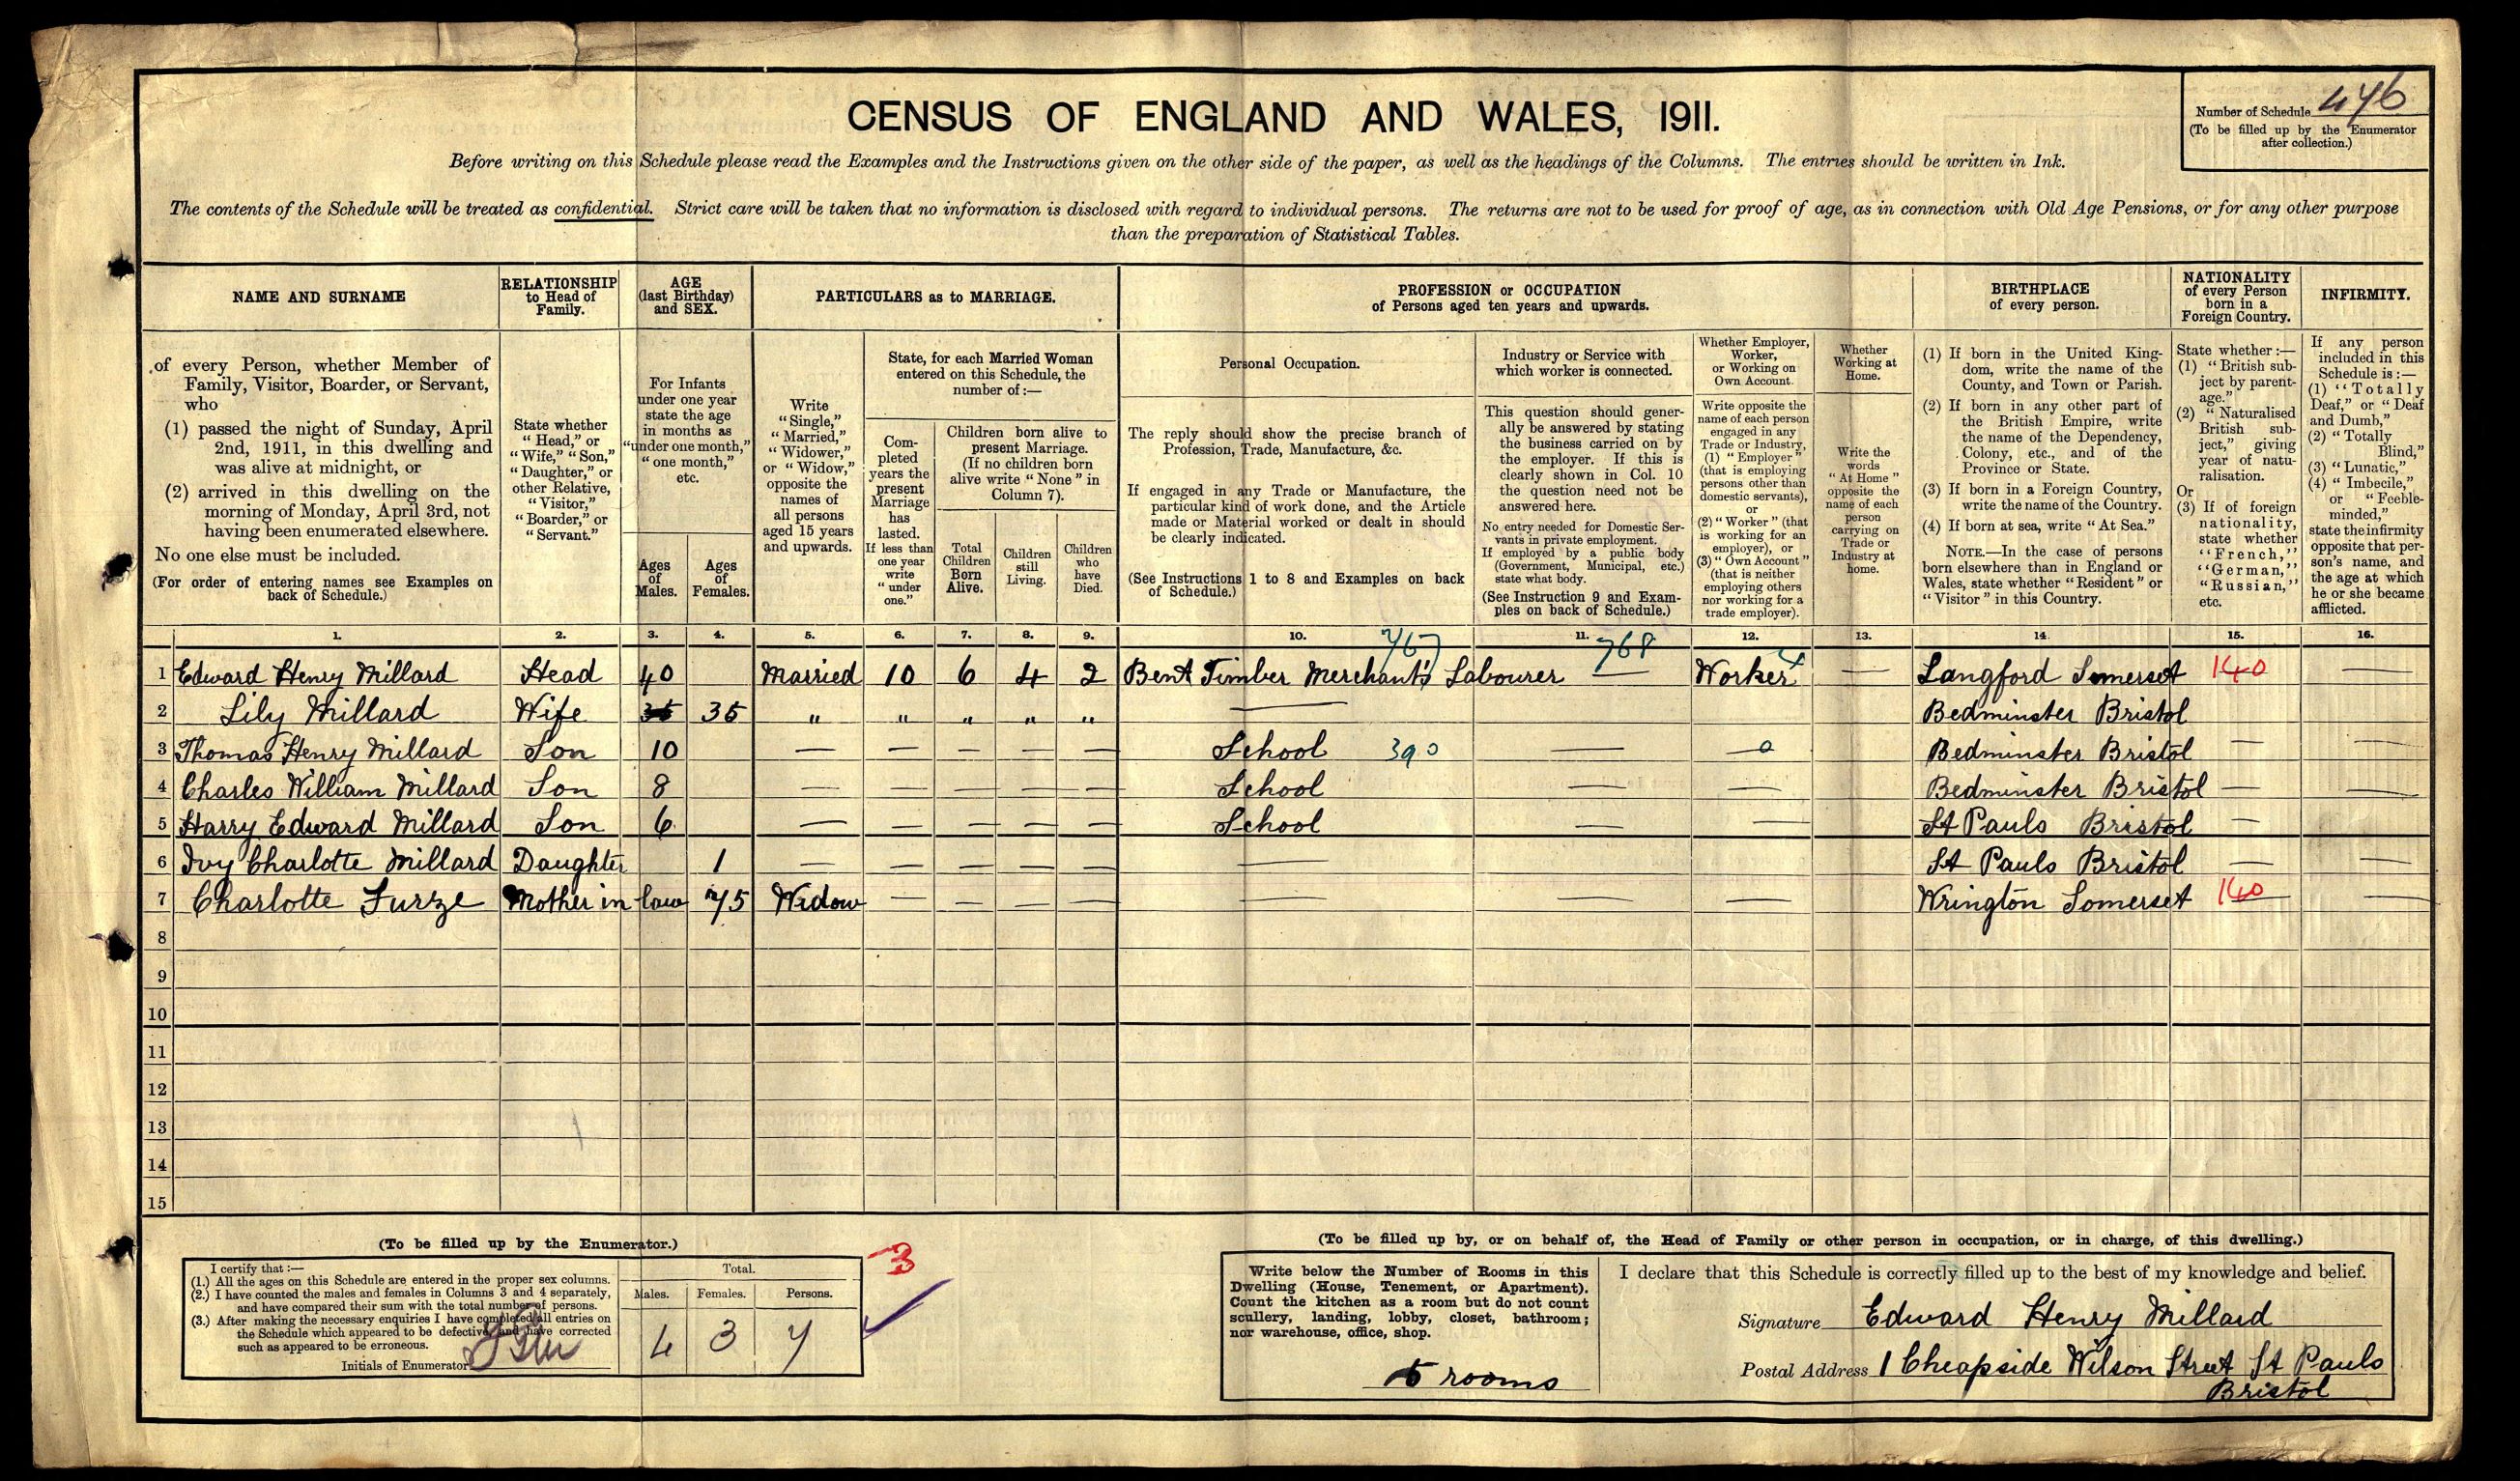 CENSUS OF ENGLAND AND WALES, 1911.
Number of Schedule 446
(To be filled up by the Enumerator
after collection.)
Before writing on this Schedule please read the Examples and the Instructions given on the other side of the paper, as well as the headings of the Columns. The entries should be written in Ink.
The contents of the Schedule will be treated as confidential. Strict care will be taken that no information is disclosed with regard to individual persons. The returns are not to be used for proof of age, as in connection with Old Age Pensions, or for any other purpose
than the preparation of Statistical Tables.
NAME AND SURNAME
of every Person, whether Member of
Family, Visitor, Boarder, or Servant,
who
(1) passed the night of Sunday, April
2nd, 1911, in this dwelling and
was alive at midnight, or
(2) arrived in this dwelling on the
morning of Monday, April 3rd, not
having been enumerated elsewhere.
No one else must be included.
(For order of entering names see Examples on
back of Schedule.)
RELATIONSHIP
to Head of
Family.
State whether
"Head," or
"Wife," "Son,"
"Daughter," or
other Relative,
"Visitor,"
"Boarder," or
"Servant."
AGE
(last Birthday)
and SEX.
For Infants
under one year
state the age
in months as
"under one month,"
"one month,"
etc.
Ages
of
Males.
Ages
of
Females.
PARTICULARS as to MARRIAGE.
Write
"Single,"
"Married,"
"Widower,"
or "Widow,"
opposite the
names of
all persons
aged 15 years
and upwards.
State, for each Married Woman
entered on this Schedule, the
number of:—
Com-
pleted
years the
present
Marriage
has
lasted.
If less than
one year
write
"under
one."
Children born alive to
present Marriage.
(If no children born
alive write "None" in
Column 7).
Total
Children
Born
Alive.
Children
still
Living.
Children
who
have
Died.
PROFESSION or OCCUPATION
of Persons aged ten years and upwards.
Personal Occupation.
The reply should show the precise branch of
Profession, Trade, Manufacture, &c.
If engaged in any Trade or Manufacture, the
particular kind of work done, and the Article
made or Material worked or dealt in should
be clearly indicated.
(See Instructions 1 to 8 and Examples on back
of Schedule.)
Industry or Service with
which worker is connected.
This question should gener-
ally be answered by stating
the business carried on by
the employer. If this is
clearly shown in Col. 10
the question need not be
answered here.
No entry needed for Domestic Ser-
vants in private employment.
If employed by a public body
(Government, Municipal, etc.)
state what body.
(See Instruction 9 and Exam-
ples on back of Schedule.)
Whether Employer,
Worker,
or Working on
Own Account.
Write opposite the
name of each person
engaged in any
Trade or Industry,
(1) "Employer"
(that is employing
persons other than
domestic servants),
or
(2) "Worker" (that
is working for an
employer), or
(3) "Own Account"
(that is neither
employing others
nor working for a
trade employer).
Whether
Working at
Home.
Write the
words
"At Home"
opposite the
name of each
person
carrying on
Trade or
Industry at
home.
BIRTHPLACE
of every person.
(1) If born in the United King-
dom, write the name of the
County, and Town or Parish.
(2) If born in any other part of
the British Empire, write
the name of the Dependency,
Colony, etc., and of the
Province or State.
(3) If born in a Foreign Country,
write the name of the Country.
(4) If born at sea, write "At Sea."
NOTE.—In the case of persons
born elsewhere than in England or
Wales, state whether "Resident" or
"Visitor" in this Country.
NATIONALITY
of every Person
born in a
Foreign Country.
State whether:—
(1) "British sub-
ject by parent-
age."
(2) "Naturalised
British sub-
ject," giving
year of natu-
ralisation.
Or
(3) If of foreign
nationality,
state whether
"French,"
"German,"
"Russian,"
etc.
INFIRMITY.
If any person
included in this
Schedule is:—
(1) "Totally
Deaf," or "Deaf
and Dumb,"
(2) "Totally
Blind,"
(3) "Lunatic,"
(4) "Imbecile,"
or "Feeble-
minded,"
state the infirmity
opposite that per-
son's name, and
the age at which
he or she became
afflicted.
1. 2. 3. 4. 5. 6. 7. 8. 9. 10. 11. 12. 13. 14. 15. 16.
767 768 4
1 Edward Henry Millard Head 40 Married 10 6 4 2 Bent Timber Merchant's Labourer — Worker — Langford Somerset 140 —
2 Lily Millard Wife 35 35 " " " " " — Bedminster Bristol
3 Thomas Henry Millard Son 10 — — — — — School 390 — 0 Bedminster Bristol — —
4 Charles William Millard Son 8 — — — — — School — — Bedminster Bristol — —
5 Harry Edward Millard Son 6 — — — — — School — — St Pauls Bristol —
6 Ivy Charlotte Millard Daughter 1 — — — — — — St Pauls Bristol — —
7 Charlotte Furze Mother in law 75 Widow — — — — — — — Wrington Somerset 140 —
8
9
10
11
12
13
14
15
(To be filled up by the Enumerator.)
I certify that:—
(1.) All the ages on this Schedule are entered in the proper sex columns.
(2.) I have counted the males and females in Columns 3 and 4 separately,
and have compared their sum with the total number of persons.
(3.) After making the necessary enquiries I have completed all entries on
the Schedule which appeared to be defective, and have corrected
such as appeared to be erroneous.
Initials of Enumerator
Total.
Males. Females. Persons.
4 3 7
3
(To be filled up by, or on behalf of, the Head of Family or other person in occupation, or in charge, of this dwelling.)
Write below the Number of Rooms in this
Dwelling (House, Tenement, or Apartment).
Count the kitchen as a room but do not count
scullery, landing, lobby, closet, bathroom;
nor warehouse, office, shop.
5 rooms
I declare that this Schedule is correctly filled up to the best of my knowledge and belief.
Signature Edward Henry Millard
Postal Address 1 Cheapside Wilson Street St Pauls
Bristol